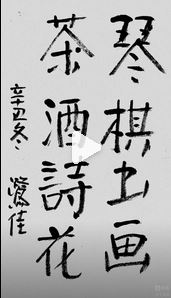 琴棋书画
茶酒詩花
辛丑冬
鹭佳